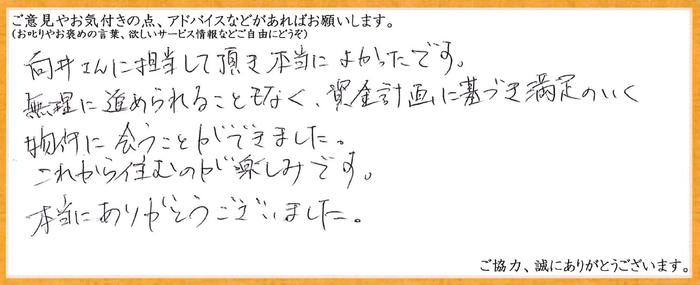 ご意見やお気付きの点、アドバイスなどがあればお願いします。
(お叱りやお褒めの言葉、欲しいサービス情報などご自由にどうぞ)
向井さんに担当して頂き本当によかったです。
無理に進められることもなく、資金計画に基づき満足のいく
物件に会うことができました。
これから住むのが楽しみです。
本当にありがとうございました。
ご協力、誠にありがとうございます。